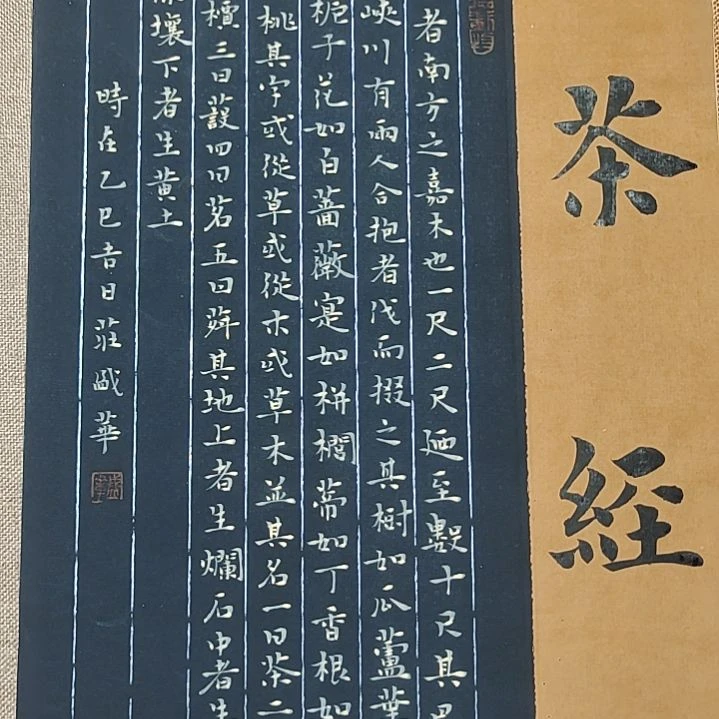 茶經
者南方之嘉木也一尺二尺廼至數十尺其巴
峽川有兩人合抱者伐而掇之其樹如瓜蘆葉
梔子花如白薔薇寔如栟櫚蒂如丁香根如
桃其字或從草或從木或草木並其名一曰茶二
檟三曰蔎四曰茗五曰荈其地上者生爛石中者生
壤下者生黄土
時在乙巳吉日莊盛華